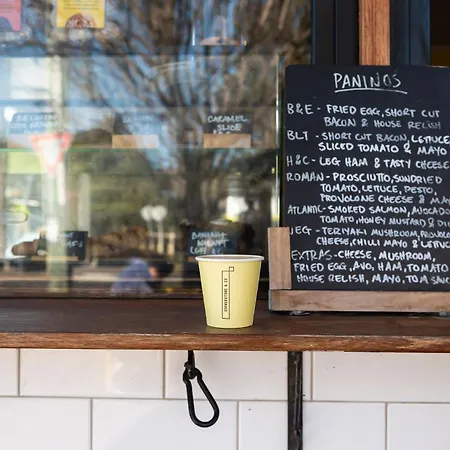 PANINOS
B&E - FRIED EGG, SHORT CUT
BACON & HOUSE RELISH
BLT - SHORT CUT BACON, LETTUCE
SLICED TOMATO & MAYO
H&C - LEG HAM & TASTY CHEESE
ROMAN - PROSCIUTTO, SUNDRIED
TOMATO, LETTUCE, PESTO,
PROVOLONE CHEESE & MAYO
ATLANTIC - SMOKED SALMON, AVOCADO
TOMATO, HONEY MUSTARD &
VEG - TERIYAKI MUSHROOM,
CHEESE, CHILLI MAYO & LETTUCE
EXTRAS - CHEESE, MUSHROOM,
FRIED EGG, AVO, HAM, TOMATO
HOUSE RELISH, MAYO, TOMATO SAUCE
CARAMEL
SLICE
BANANA
WALNUT